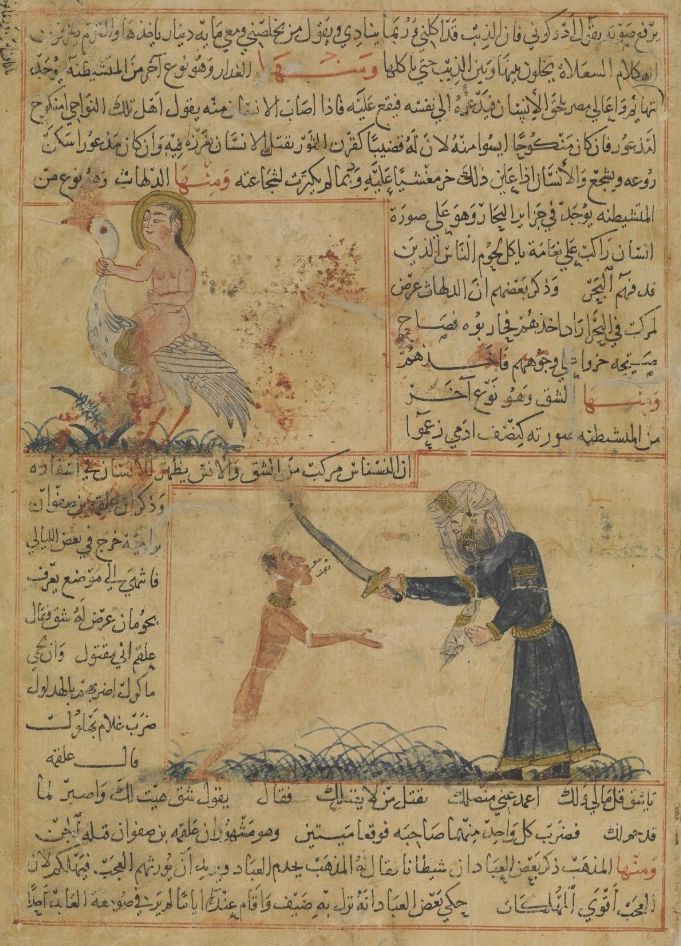 يرفع صوته يقول ادركوني فان الذيب قد اكلني وربما ينادي ويقول من يخلصني ومعي ماية دينار ياخذها والقوم يعرفون
انه كلام السعلاة يخلون بينها وبين الذيب حتى ياكلها ومنها الغدار وهو نوع آخر من المتشيطنة يوجد
اعالي مصر يلحق الانسان فيدعوه الى نفسه فيقع عليه فاذا اصاب الانسان منه يقول اهل تلك النواحي امنكوح
ام مذعور فان كان منكوحا ايسوا منه لان له قضيبا كقرن الثور يقتل الانسان بغرزه فيه وان كان مذعورا سكن
روعه ويشجع والانسان اذا عاين ذلك خر مغشيا عليه وربما لم يكترث لشجاعته ومنها الدلهاث وهو نوع من
المتشيطنة يوجد في جزاير البحار وهو على صورة
انسان راكب على نعامة ياكل لحوم الناس الذين
قذفهم البحر وذكر بعضهم ان الدلهاث عرض
لمركب في البحر اراد اخذهم فحاربوه فصاح
صيحة خروا على وجوههم فاخذهم
ومنها الشق وهو نوع آخر
من المتشيطنة صورته كنصف ادمي زعموا
ان النسناس مركب من الشق والانس يظهر للانسان في اسفاره
وذكر ان علقمة بن صفوان
خرج في بعض الليالي
فانتهى الى موضع يعرف
بحومان عرض له شق فقال
علقم اني مقتول وان لحمي
ماكول اضربهم بالهذلول
ضرب غلام بهلول
قال علقمة
يا شق قل مالي ولك اعمد عني منصلك تقتل من لا يقتلك فقال يقول شق هيت لك واصبر لما
قد حم لك فضرب كل واحد منهما صاحبه فوقعا ميتين وهو مشهور ان علقمة بن صفوان قتله الجن
ومنها المذهب ذكر بعض العباد ان شيطانا يقال له المذهب يخدم العباد ويريد ان يورثهم العجب فيهلكهم لان
العجب اقوى المهلكات حكى بعض العباد انه نزل به ضيف واقام عنده اياما لم ير في صومعة العابد احدا